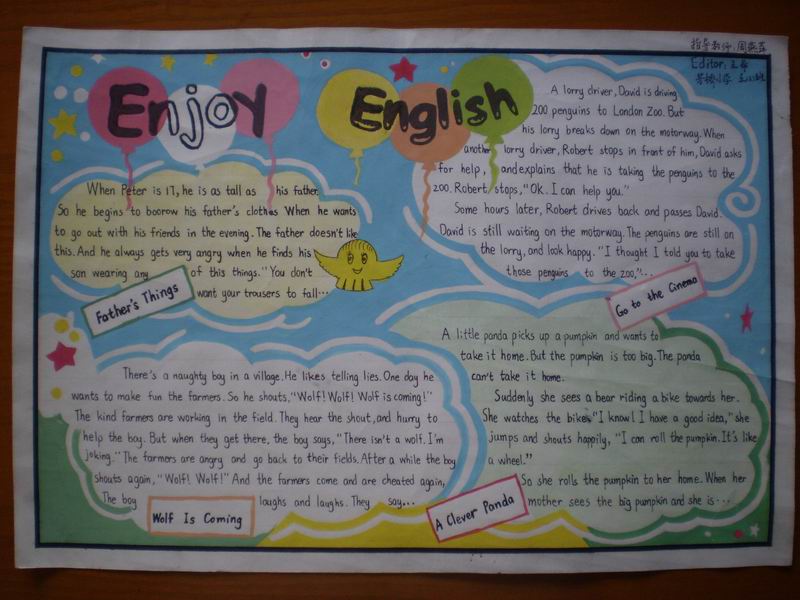 Enjoy English
指导教师:周燕萍
Editor:
When Peter is 17, he is as tall as his father.
So he begins to boorow his father's clothes When he wants
to go out with his friends in the evening. The father doesn't like
this. And he always gets very angry when he finds his
son wearing any of this things. "You don't
want your trousers to fall...
Father's Things
A lorry driver, David is driving
200 penguins to London Zoo. But
his lorry breaks down on the motorway. When
another lorry driver, Robert stops in front of him, David asks
for help, and explains that he is taking the penguins to the
zoo. Robert stops, "Ok. I can help you."
Some hours later, Robert drives back and passes David.
David is still waiting on the motorway. The penguins are still on
the lorry, and look happy. "I thought I told you to take
those penguins to the zoo,"...
Go to the Cinema
There's a naughty boy in a village. He likes telling lies. One day he
wants to make fun the farmers. So he shouts, "Wolf! Wolf! Wolf is coming!"
The kind farmers are working in the field. They hear the shout, and hurry to
help the boy. But when they get there, the boy says, "There isn't a wolf. I'm
joking." The farmers are angry and go back to their fields. After a while the boy
shouts again, "Wolf! Wolf!" And the farmers come and are cheated again,
The boy laughs and laughs. They say...
Wolf Is Coming
A little panda picks up a pumpkin and wants to
take it home. But the pumpkin is too big. The panda
can't take it home.
Suddenly she sees a bear riding a bike towards her.
She watches the bike. "I know! I have a good idea," she
jumps and shouts happily, "I can roll the pumpkin. It's like
a wheel."
So she rolls the pumpkin to her home. When her
mother sees the big pumpkin and she is...
A Clever Panda